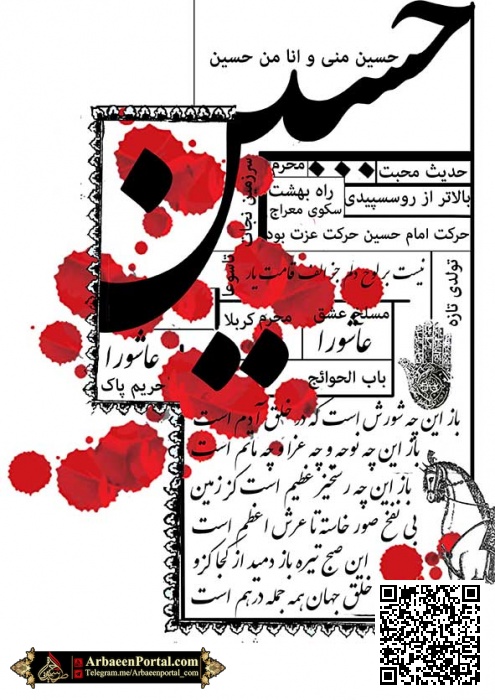 حسین منی و انا من حسین
حسین
محرم
حدیث محبت
سرزمین نجات
راه بهشت
سکوی معراج
بالاتر از روسپیدی
حرکت امام حسین حرکت عزت بود
تاسوعا
نیست بر لوح دلم جز الف قامت یار
تولدی تازه
محرم کربلا
مسلخ عشق
عاشورا
عاشورا
حریم پاک
باب الحوائج
باز این چه شورش است که در خلق آدم است
باز این چه نوحه و چه عزا و چه ماتم است
باز این چه رستخیز عظیم است کز زمین
بی نفخ صور خاسته تا عرش اعظم است
این صبح تیره باز دمید از کجا کزو
خلق جهان همه جمله در هم است
ArbaeenPortal.com
Telegram.me/Arbaeenportal_com